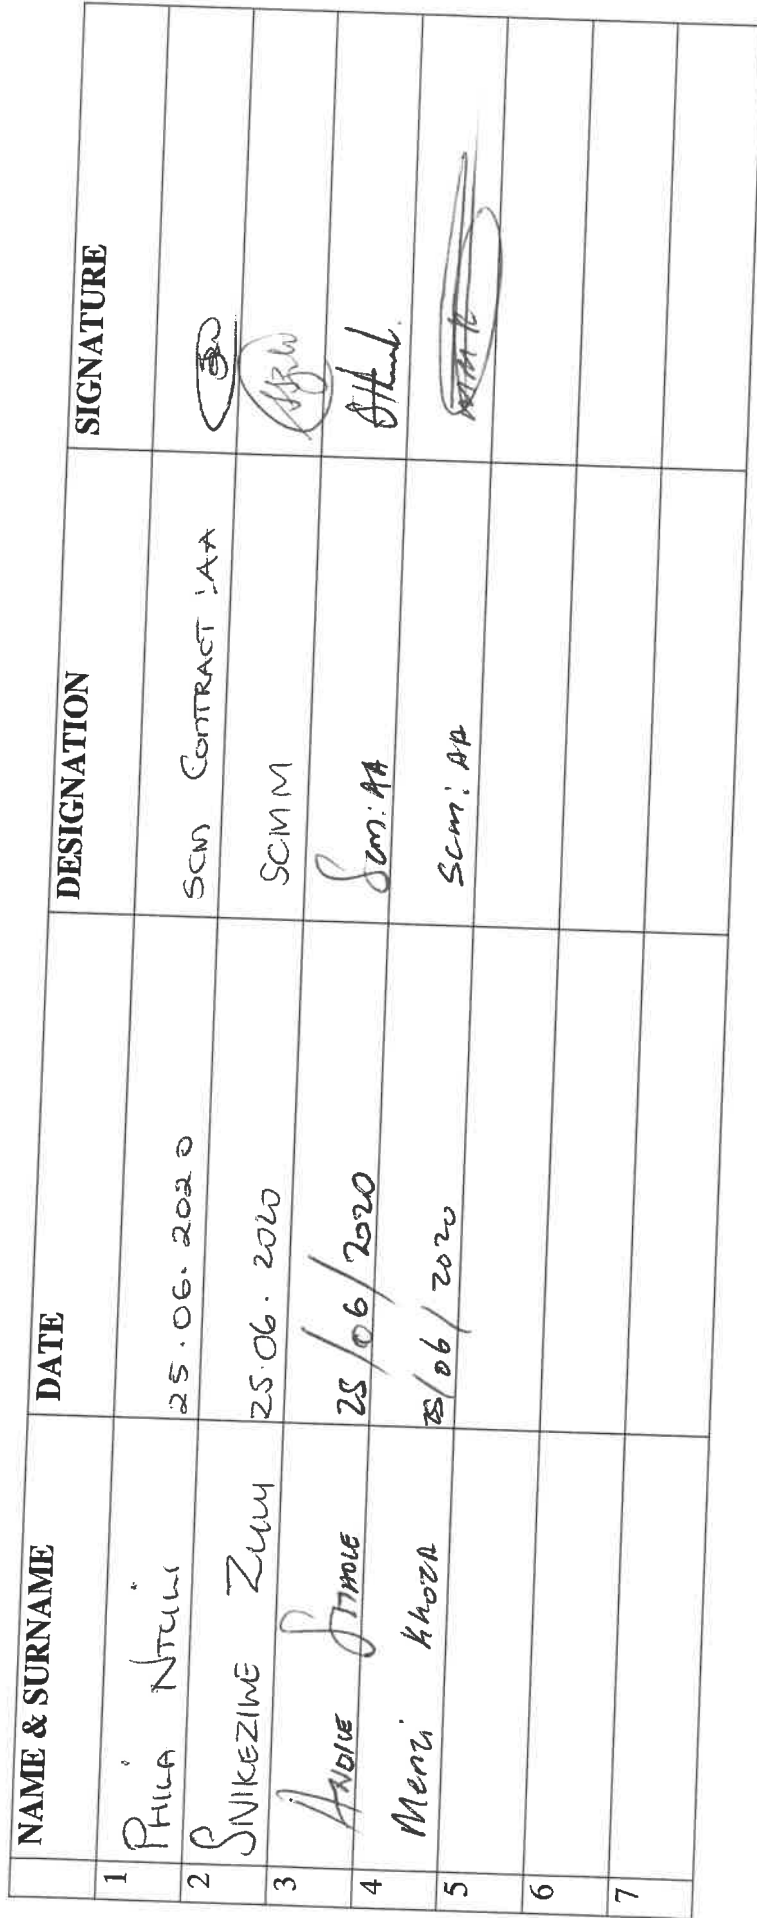 NAME & SURNAME DATE DESIGNATION SIGNATURE
1 PHILA 25.06.2020 SCM CONTRACT :AA
2 SIVIKEZIWE 25.06.2020 SCMM
3 ANDILE SITHOLE 25/06/2020 SCM: AA
4 Menzi KHOZA 25/06/2020 SCM: AA
5
6
7